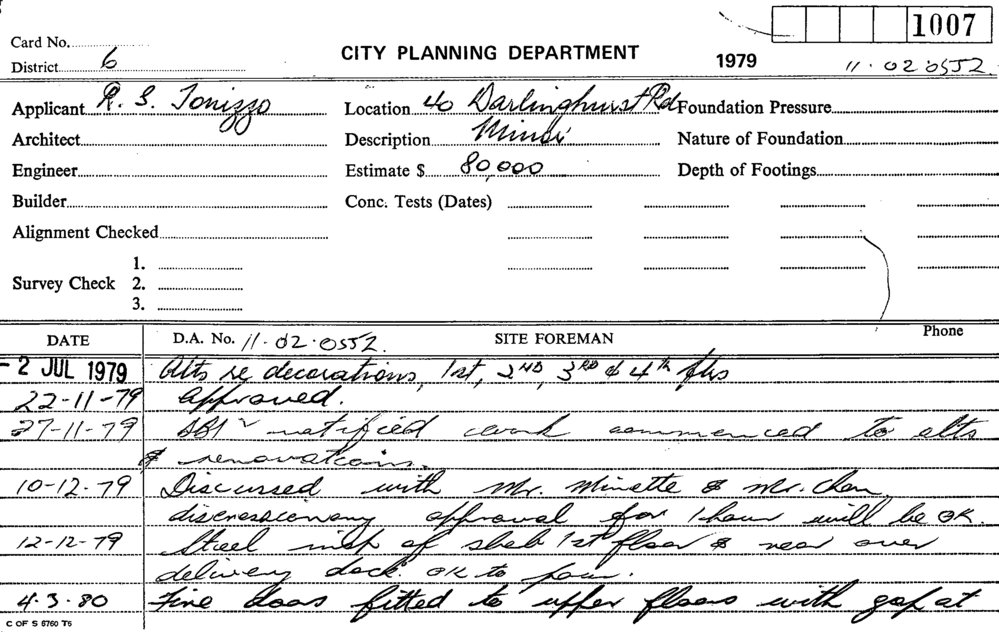 1007
Card No.
District 6
CITY PLANNING DEPARTMENT
1979
11.02.0552.
Applicant R. S. Tonizzo
Location 40 Darlinghurst Rd
Foundation Pressure
Architect
Description Minor
Nature of Foundation
Engineer
Estimate $ 80,000
Depth of Footings
Builder
Conc. Tests (Dates)
Alignment Checked
Survey Check
1.
2.
3.
DATE
D.A. No. 11.02.0552.
SITE FOREMAN
Phone
- 2 JUL 1979 Alts re decorations, 1st, 2ND, 3RD & 4th flrs
22-11-79 Approved.
27-11-79 notified work commenced to alts
& renovations.
10-12-79 Discussed with Mr. Minette & Mr. Chan
approval for 1 hour will be OK
12-12-79 Steel insp of slab 1st floor & rear over
delivery dock. OK to pour.
4.3.80 Fire doors fitted to upper floors with gap at
C OF S 6760 T6